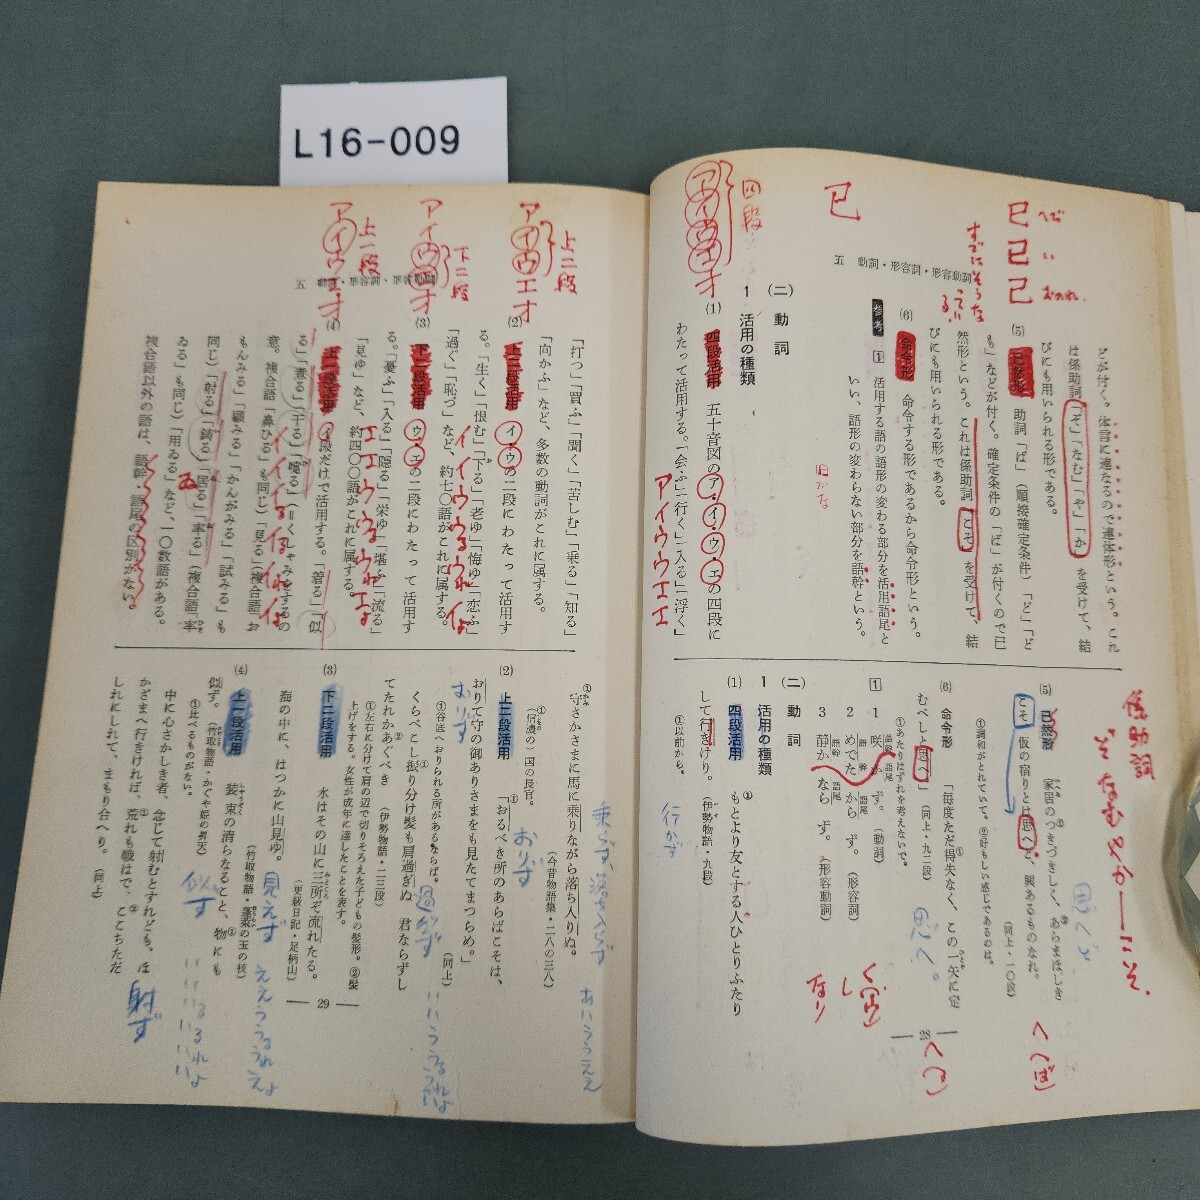 L16-009
五 動詞・形容詞・形容動詞
とが付く。体言に連なるので連体形という。これ
は係助詞「ぞ」「なむ」「や」「か」を受けて、結
びにも用いられる形である。
(5) 已然形 助詞「ば」(順接確定条件)「ど」「ど
も」などが付く。確定条件の「ば」が付くので已
然形という。これは係助詞こそを受けて、結
びにも用いられる形である。
(6) 命令形 命令する形であるから命令形という。
参考 1 活用する語の語形の変わる部分を活用語尾と
いい、語形の変わらない部分を語幹という。
(二) 動詞
1 活用の種類
(1) 四段活用 五十音図のア・イ・ウ・エの四段に
わたって活用する。「会ふ」「行く」「入る」「浮く」
已 へび
已 い
己 おのれ
已
すでにそうな
っている
四段
アイウエオ
旧かな
アイウウエエ
(5) 已然形 家居のつきづきしく、あらまほしき
こそ、仮の宿りとは思へど、興あるものなれ。
(同上・一〇段)
①調和がとれていて。②好もしい感じであるのは。
(6) 命令形 「毎度ただ得失なく、この一矢に定
むべしと思へ」(同上・九二段)
①あたりはずれを考えないで。
1 1 咲か ず。(動詞)
2 めでたから ず。(形容詞)
3 静かなら ず。(形容動詞)
語幹 語尾
語幹 語尾
語幹 語尾
(二) 動詞
1 活用の種類
(1) 四段活用 もとより友とする人ひとりふたり
して行きけり。(伊勢物語・九段)
①以前から。
係助詞
ぞなむやか―こそ
思へど
思へ。
行かず
なり
28
五 動詞・形容詞・形容動詞
上二段
アイウエオ
下二段
アイウエオ
上一段
アイウエオ
「打つ」「買ふ」「聞く」「苦しむ」「乗る」「知る」
「向かふ」など、多数の動詞がこれに属する。
(2) 上二段活用 イ・ウの二段にわたって活用す
る。「生く」「恨む」「下る」「老ゆ」「悔ゆ」「恋ふ」
「過ぐ」「恥づ」など、約七〇語がこれに属する。
(3) 下二段活用 ウ・エの二段にわたって活用す
る。「憂ふ」「入る」「隠る」「栄ゆ」「堪ふ」「流る」
「見ゆ」など、約四〇〇語がこれに属する。
(4) 上一段活用 イ段だけで活用する。「着る」「似
る」「煮る」「干る」「嚔る」(=くしゃみをするの
意。複合語「鼻ひる」も同じ)「見る」(複合語「お
もんみる」「顧みる」「かんがみる」「試みる」も
同じ)「射る」「鋳る」「居る」「率る」(複合語「率
ゐる」も同じ)「用ゐる」など、一〇数語がある。
複合語以外の語は、語幹・語尾の区別がない。
①守さかさまに馬に乗りながら落ち入りぬ。
(今昔物語集・二八の三八)
①(信濃の)国の長官。
(2) 上二段活用 「おるべき所のあらばこそは、
おりて守の御ありさまをも見たてまつらめ。」
(同上)
①谷底へおりられる所があるならば。
くらべこし振り分け髪も肩過ぎぬ 君ならずし
てたれかあぐべき (伊勢物語・二三段)
①左右に分けて肩の辺で切りそろえた子どもの髪形。②髪
上げをする。女性が成年に達したことを表す。
(3) 下二段活用 水はその山に三所ぞ流れたる。
(更級日記・足柄山)
海の中に、はつかに山見ゆ。
(竹取物語・蓬莱の玉の枝)
(4) 上一段活用 装束の清らなること、物にも
似ず。(竹取物語・かぐや姫の昇天)
①比べるものがない。
中に心さかしき者、念じて射むとすれども、ほ
かざまへ行きければ、荒れも戦はで、ここちただ
しれにしれて、まもり合へり。(同上)
乗らず 落ち入らず
おりず
おりず
過ぎず
見えず
似ず
射ず
29